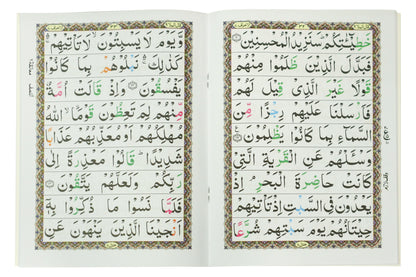 خَطِيْٓـٰٔتِكُمْ سَنَزِيْدُ الْمُحْسِنِيْنَ
فَبَدَّلَ الَّذِيْنَ ظَلَمُوْا مِنْهُمْ
قَوْلًا غَيْرَ الَّذِيْ قِيْلَ لَهُمْ
فَاَرْسَلْنَا عَلَيْهِمْ رِجْزًا مِّنَ
السَّمَآءِ بِمَا كَانُوْا يَظْلِمُوْنَ
وَسْـَٔلْهُمْ عَنِ الْقَرْيَةِ الَّتِيْ
كَانَتْ حَاضِرَةَ الْبَحْرِ اِذْ
يَعْدُوْنَ فِي السَّبْتِ اِذْ تَاْتِيْهِمْ
حِيْتَانُهُمْ يَوْمَ سَبْتِهِمْ شُرَّعًا
وَّيَوْمَ لَا يَسْبِتُوْنَ لَا تَاْتِيْهِمْ
كَذٰلِكَ نَبْلُوْهُمْ بِمَا كَانُوْا
يَفْسُقُوْنَ وَاِذْ قَالَتْ اُمَّةٌ
مِّنْهُمْ لِمَ تَعِظُوْنَ قَوْمًا اللّٰهُ
مُهْلِكُهُمْ اَوْ مُعَذِّبُهُمْ عَذَابًا
شَدِيْدًا قَالُوْا مَعْذِرَةً اِلٰى
رَبِّكُمْ وَلَعَلَّهُمْ يَتَّقُوْنَ
فَلَمَّا نَسُوْا مَا ذُكِّرُوْا بِهٖٓ
اَنْجَيْنَا الَّذِيْنَ يَنْهَوْنَ عَنِ